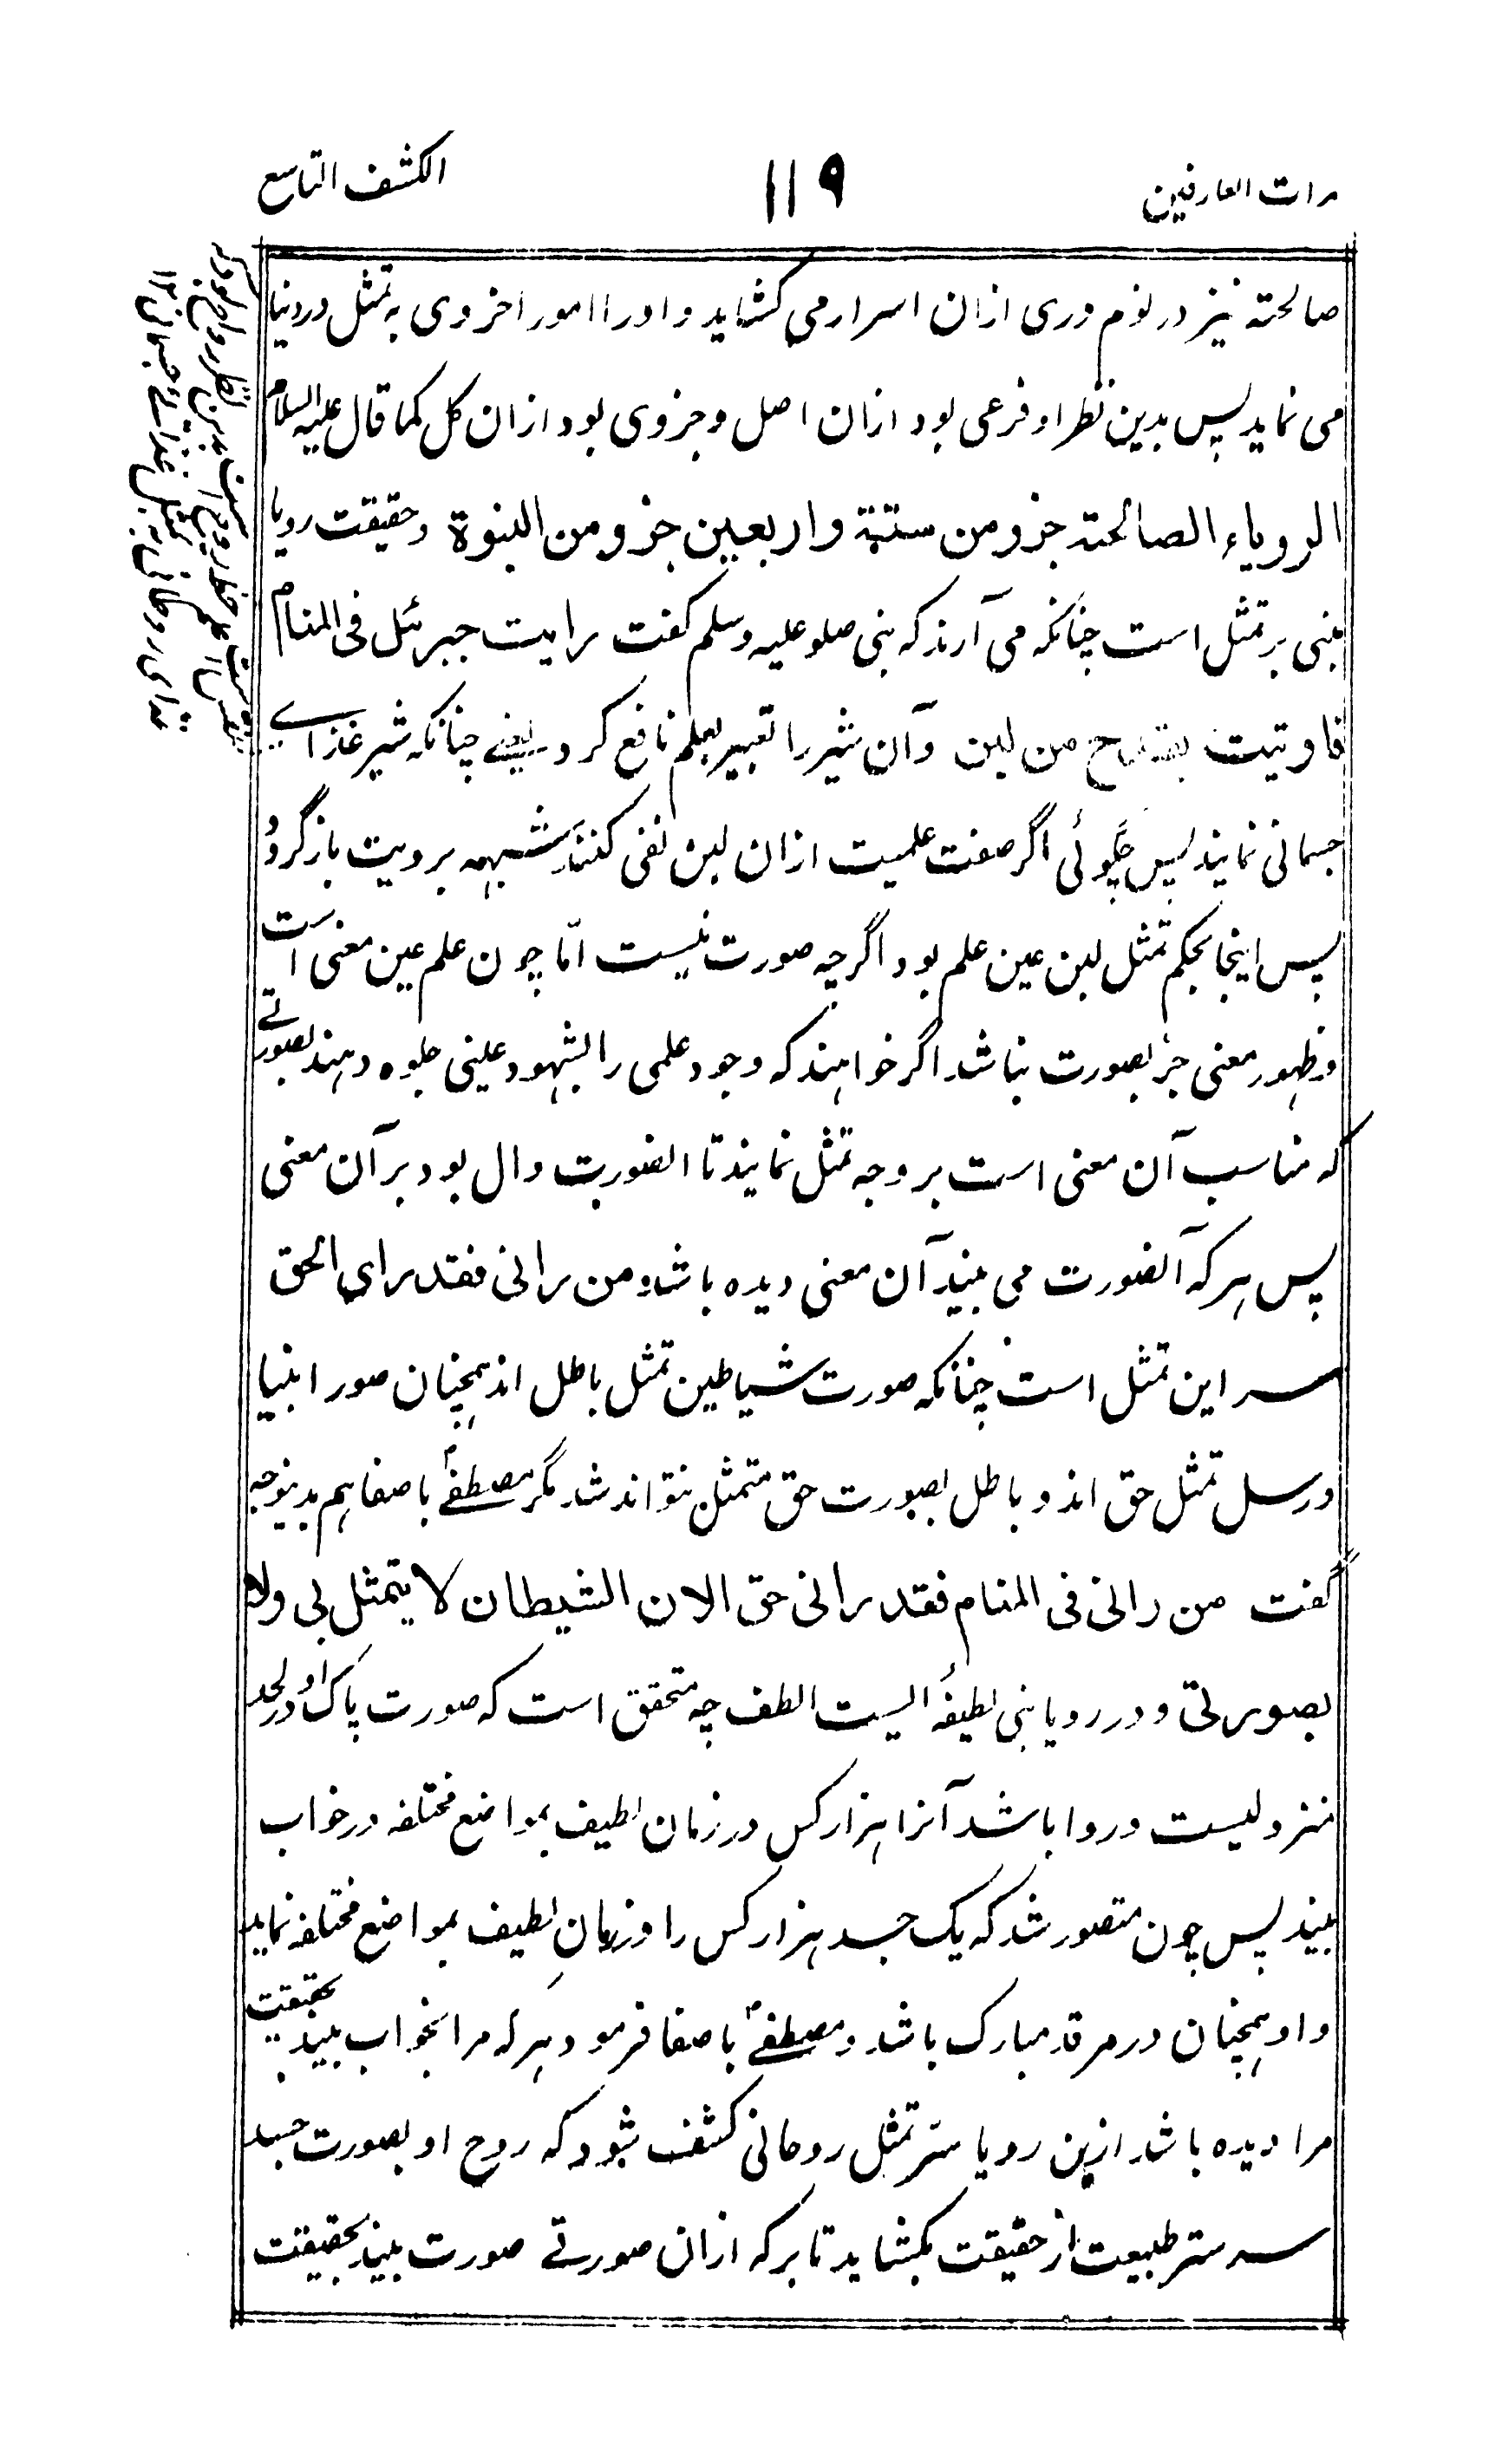 مرات العارفین ۱۱۹ الکشف التاسع
صالحتہ نیز در نوم دری ازان اسرار می کشاید و اورا امور اخروی بہ تمثل در دنیا
می نماید پس بدین نظر او فرعی بود ازان اصل و جزوی بود ازان کل کما قال علیہ السلام
الرویاء الصالحتہ جزو من ستتہ و اربعین جزو من النبوة و حقیقت رویا
مبنی بر تمثل است چنانکہ می آرند کہ نبی صلو علیہ وسلم گفت رایت جبرئل فی المنام
فاوتیت بقدح من لبن و آن شیر را تعبیر بعلم نافع کرد یعنے چنانکہ شیر غذاے
جسمانی نمایند پس چگوئی اگر صفت علمیت ازان لبن نفی کنند شبہہ برویت بازگردد
پس اینجا بحکم تمثل لبن عین علم بود اگرچہ صورت نیست امّا چون علم عین معنی است
و ظہور معنی جز بصورت نباشد اگر خواہند کہ وجود علمی را بشہود عینی جلوہ دہند بصورتے
کہ مناسب آن معنی است بر وجہ تمثل نمایند تا الصورت دال بود بر آن معنی
پس ہر کہ آنصورت می بیند آن معنی دیدہ باشد و من رانی فقد رای الحق
سر این تمثل است چنانکہ صورت شیاطین تمثل باطل اند ہمچنان صور انبیا
و رسل تمثل حق اند و باطل بصورت حق متمثل نتواند شد مگر مصطفےٰ با صفا ہم بدینوجہ
گفت من رانی فی المنام فقد رانی حق الان الشیطان لا یتمثل بی ولا
بصورتی و در رویا نبی لطیفۂ الیست الطف چہ متحقق است کہ صورت پاک او در لحد
منزولیست و روا باشد آنرا ہزار کس در زمان لطیف بمواضع مختلفہ در خواب
بیند پس چون متصور شد کہ یک جسد ہزار کس را در زمانِ لطیف بمواضع مختلفہ نماید
و او ہمچنان در مرقد مبارک باشد و مصطفےٰ با صفا فرمود ہر کہ مرا بخواب بیند بحقیقت
مرا دیدہ باشد ازین رویا سرّ تمثل روحانی کشف شود کہ روح او بصورت جسد
ستر طبیعت از حقیقت بکشاید تا ہر کہ ازان صورتے صورت بیند بحقیقت